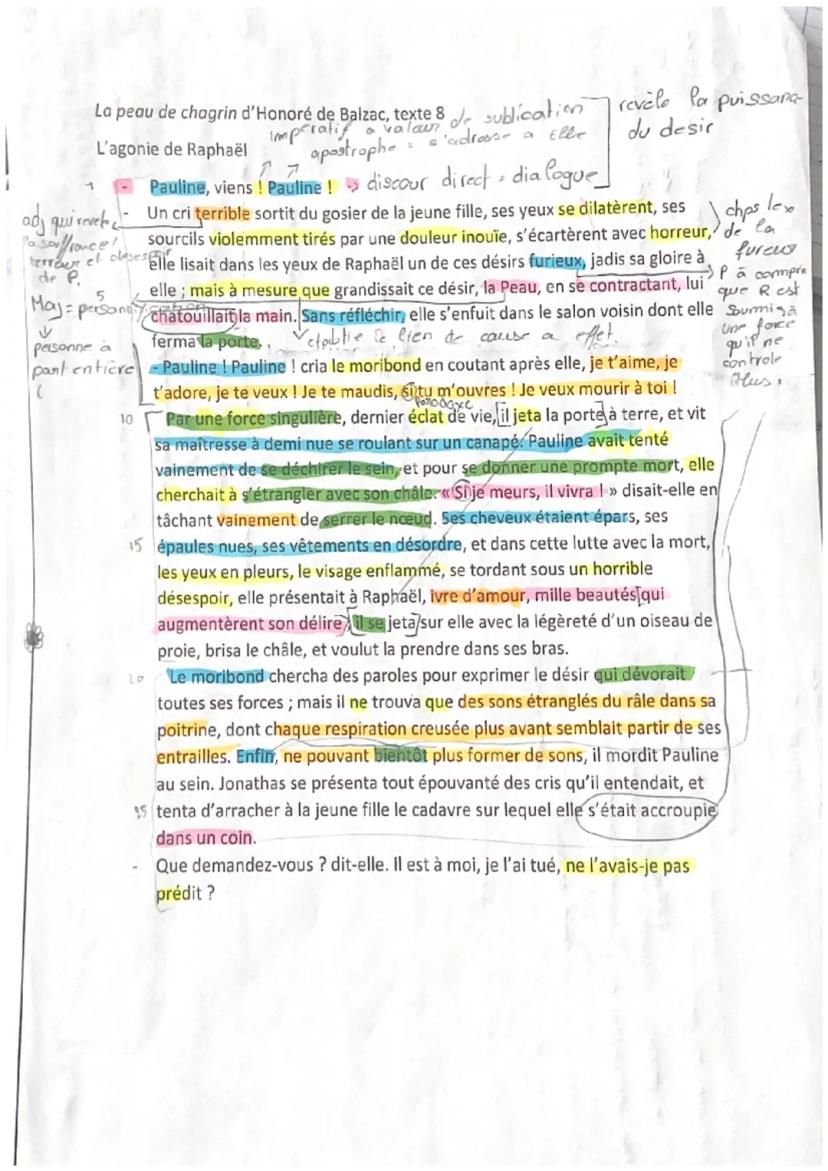 La peau de chagrin d'Honoré de Balzac, texte 8
de sublication
revèle la puissance
du desir
imperatif a valeur
L'agonie de Raphaël
apostrophe = s'adresse a elle
- Pauline, viens ! Pauline !
discour direct = dialogue
- Un cri terrible sortit du gosier de la jeune fille, ses yeux se dilatèrent, ses
sourcils violemment tirés par une douleur inouïe, s'écartèrent avec horreur,
elle lisait dans les yeux de Raphaël un de ces désirs furieux, jadis sa gloire à
elle ; mais à mesure que grandissait ce désir, la Peau, en se contractant, lui
chatouillait la main. Sans réfléchir, elle s'enfuit dans le salon voisin dont elle
ferma la porte.
etablie le lien de cause a effet.
adj qui revele
la souffrance/
terreur et desespoir
de P.
5
Maj = personnification
personne à
part entière
chps lex
de la
fureur
P à compris
que R est
soumis à
une force
qu'il ne
controle
plus.
- Pauline ! Pauline ! cria le moribond en coutant après elle, je t'aime, je
t'adore, je te veux ! Je te maudis, si tu m'ouvres ! Je veux mourir à toi !
Paradoxe
10
Par une force singulière, dernier éclat de vie, il jeta la porte à terre, et vit
sa maîtresse à demi nue se roulant sur un canapé. Pauline avait tenté
vainement de se déchirer le sein, et pour se donner une prompte mort, elle
cherchait à s'étrangler avec son châle. « Si je meurs, il vivra ! » disait-elle en
tâchant vainement de serrer le nœud. Ses cheveux étaient épars, ses
15 épaules nues, ses vêtements en désordre, et dans cette lutte avec la mort,
les yeux en pleurs, le visage enflammé, se tordant sous un horrible
désespoir, elle présentait à Raphaël, ivre d'amour, mille beautés qui
augmentèrent son délire, il se jeta sur elle avec la légèreté d'un oiseau de
proie, brisa le châle, et voulut la prendre dans ses bras.
20 Le moribond chercha des paroles pour exprimer le désir qui dévorait
toutes ses forces ; mais il ne trouva que des sons étranglés du râle dans sa
poitrine, dont chaque respiration creusée plus avant semblait partir de ses
entrailles. Enfin, ne pouvant bientôt plus former de sons, il mordit Pauline
au sein. Jonathas se présenta tout épouvanté des cris qu'il entendait, et
25 tenta d'arracher à la jeune fille le cadavre sur lequel elle s'était accroupie
dans un coin.
- Que demandez-vous ? dit-elle. Il est à moi, je l'ai tué, ne l'avais-je pas
prédit ?